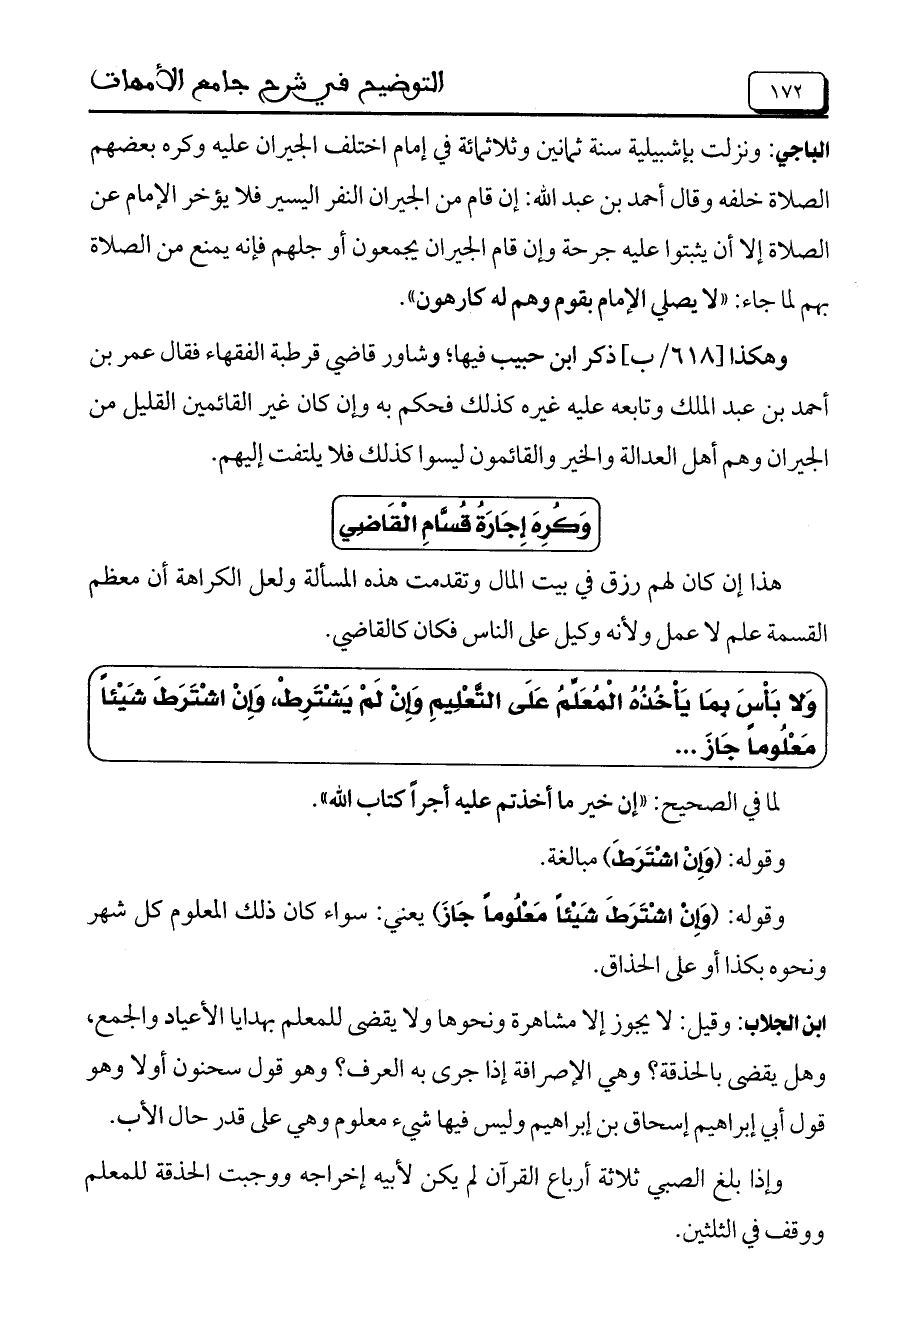 ١٧٢
التوضيح في شرح جامع الأمهات
الباجي: ونزلت بإشبيلية سنة ثمانين وثلاثمائة في إمام اختلف الجيران عليه وكره بعضهم
الصلاة خلفه وقال أحمد بن عبد الله: إن قام من الجيران النفر اليسير فلا يؤخر الإمام عن
الصلاة إلا أن يثبتوا عليه جرحة وإن قام الجيران يجمعون أو جلهم فإنه يمنع من الصلاة
بهم لما جاء: «لا يصلي الإمام بقوم وهم له كارهون».
وهكذا [٦١٨/ ب] ذكر ابن حبيب فيها؛ وشاور قاضي قرطبة الفقهاء فقال عمر بن
أحمد بن عبد الملك وتابعه عليه غيره كذلك فحكم به وإن كان غير القائمين القليل من
الجيران وهم أهل العدالة والخير والقائمون ليسوا كذلك فلا يلتفت إليهم.
وَكُرِهَ إِجَارَةُ قُسَّامِ الْقَاضِي
هذا إن كان لهم رزق في بيت المال وتقدمت هذه المسألة ولعل الكراهة أن معظم
القسمة علم لا عمل ولأنه وكيل على الناس فكان كالقاضي.
وَلا بَأْسَ بِمَا يَأْخُذُهُ الْمُعَلِّمُ عَلَى التَّعْلِيمِ وَإِنْ لَمْ يَشْتَرِطْ، وَإِنْ اشْتَرَطَ شَيْئاً
مَعْلُوماً جَازَ ...
لما في الصحيح: «إن خير ما أخذتم عليه أجراً كتاب الله».
وقوله: (وَإِنْ اشْتَرَطَ) مبالغة.
وقوله: (وَإِنْ اشْتَرَطَ شَيْئاً مَعْلُوماً جَازَ) يعني: سواء كان ذلك المعلوم كل شهر
ونحوه بكذا أو على الحذاق.
ابن الجلاب: وقيل: لا يجوز إلا مشاهرة ونحوها ولا يقضى للمعلم بهدايا الأعياد والجمع،
وهل يقضى بالحذقة؟ وهي الإصرافة إذا جرى به العرف؟ وهو قول سحنون أولا وهو
قول أبي إبراهيم إسحاق بن إبراهيم وليس فيها شيء معلوم وهي على قدر حال الأب.
وإذا بلغ الصبي ثلاثة أرباع القرآن لم يكن لأبيه إخراجه ووجبت الحذقة للمعلم
ووقف في الثلثين.